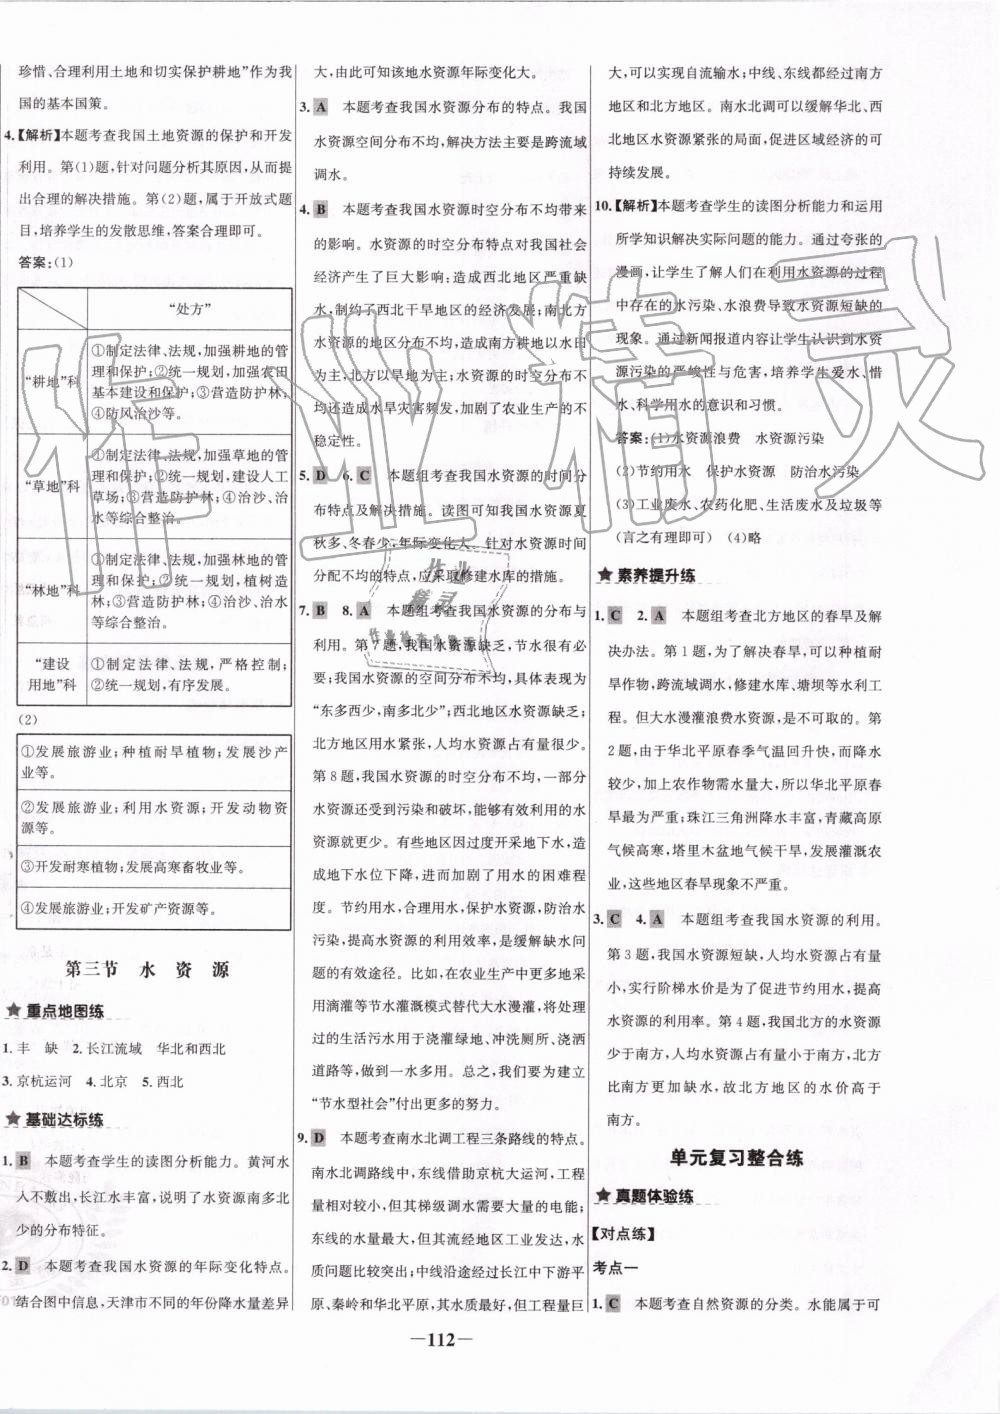 珍惜、合理利用土地和切实保护耕地”作为我
国的基本国策。
4.【解析】本题考查我国土地资源的保护和开发
利用。第(1)题,针对问题分析其原因,从而提
出合理的解决措施。第(2)题,属于开放式题
目,培养学生的发散思维,答案合理即可。
答案:(1)
“处方”
“耕地”科
①制定法律、法规,加强耕地的管
理和保护;②统一规划,加强农田
基本建设和保护;③营造防护林;
④防风治沙等。
“草地”科
①制定法律、法规,加强草地的管
理和保护;②统一规划,建设人工
草场;③营造防护林;④治沙、治
水等综合整治。
“林地”科
①制定法律、法规,加强林地的管
理和保护;②统一规划,植树造
林;③营造防护林;④治沙、治水
等综合整治。
“建设
用地”科
①制定法律、法规,严格控制;
②统一规划,有序发展。
(2)
①发展旅游业;种植耐旱植物;发展沙产
业等。
②发展旅游业;利用水资源;开发动物资
源等。
③开发耐寒植物;发展高寒畜牧业等。
④发展旅游业;开发矿产资源等。
第三节 水 资 源
★ 重点地图练
1. 丰 缺 2. 长江流域 华北和西北
3. 京杭运河 4. 北京 5. 西北
★ 基础达标练
1. B 本题考查学生的读图分析能力。黄河水
入不敷出,长江水丰富,说明了水资源南多北
少的分布特征。
2. D 本题考查我国水资源的年际变化特点。
结合图中信息,天津市不同的年份降水量差异
大,由此可知该地水资源年际变化大。
3. A 本题考查我国水资源分布的特点。我国
水资源空间分布不均,解决方法主要是跨流域
调水。
4. B 本题考查我国水资源时空分布不均带来
的影响。水资源的时空分布特点对我国社会
经济产生了巨大影响;造成西北地区严重缺
水,制约了西北干旱地区的经济发展;南北方
水资源的分布不均,造成南方耕地以水田
为主,北方以旱地为主;水资源的时空分布不
均还造成水旱灾害频发,加剧了农业生产的不
稳定性。
5. D 6. C 本题组考查我国水资源的时间分
布特点及解决措施。读图可知我国水资源夏
秋多、冬春少,年际变化大。针对水资源时间
分配不均的特点,应采取修建水库的措施。
7. B 8. A 本题组考查我国水资源的分布与
利用。第7题,我国水资源缺乏,节水很有必
要;我国水资源的空间分布不均,具体表现为
“东多西少,南多北少”;西北地区水资源缺乏;
北方地区用水紧张,人均水资源占有量很少。
第8题,我国水资源的时空分布不均,一部分
水资源还受到污染和破坏,能够有效利用的水
资源较少。人类通过过度开采地下水,造成
地下水位下降,进而加剧了用水的困难程
度。节约用水,合理用水,保护水资源,防治水
污染,提高水资源的利用效率,是缓解缺水问题
的有效途径。比如,在农业生产中更多地采
用滴灌等节水灌溉模式替代大水漫灌,将处理
过的生活污水用于浇灌绿地、冲洗厕所、浇洒
道路等,做到一水多用。总之,我们要为建立
“节水型社会”付出更多的努力。
9. D 本题考查南水北调工程三条路线的特点。
南水北调路线中,东线借助京杭大运河,工程
量最小,但其梯级调水需要大量的电能;
东线的水量最大,但其流经地区工业发达,水
质问题影响较大;中线沿途经过长江中下游平
原、秦岭和华北平原,其水质最好,但工程量巨
大,可以实现自流输水;中线、东线都经过南方
地区和北方地区。南水北调可以缓解华北、西
北地区水资源紧张的局面,促进区域经济的可
持续发展。
10.【解析】本题考查学生的读图分析能力和运用
所学知识解决实际问题的能力。通过夸张的
漫画,让学生了解人们在利用水资源的过程
中存在的水污染、水浪费导致水资源短缺的
现象。通过新闻报道内容让学生认识到水资
源污染的严峻性与危害,培养学生爱水、惜
水、科学用水的意识和习惯。
答案:(1)水资源浪费 水资源污染
(2)节约用水 保护水资源 防治水污染
(3)工业废水、农药化肥、生活废水及垃圾等
(言之有理即可) (4)略
★ 素养提升练
1. C 2. A 本题组考查北方地区的春旱及解
决办法。第1题,为了解决春旱,可以种植耐
旱作物,跨流域调水,修建水库、塘坝等水利工
程。但大水漫灌浪费水资源,是不可取的。第
2题,由于华北平原春季气温回升快,而降水
较少,加上农作物需水量大,所以华北平原春
旱最为严重;珠江三角洲降水丰富,青藏高原
气候高寒,塔里木盆地气候干旱,发展灌溉农
业,这些地区春旱现象不严重。
3. C 4. A 本题组考查我国水资源的利用。
第3题,我国水资源缺乏,人均水资源占有量
小,实行阶梯水价是为了促进节约用水,提高
水资源的利用率。第4题,我国北方的水资源
少于南方,人均水资源占有量小于南方,北方
比南方更加缺水,故北方地区的水价高于
南方。
单元复习整合练
★ 真题体验练
【对点练】
考点一
1. C 本题考查自然资源的分类。水能属于可
—112—
作业精灵
作业
精灵